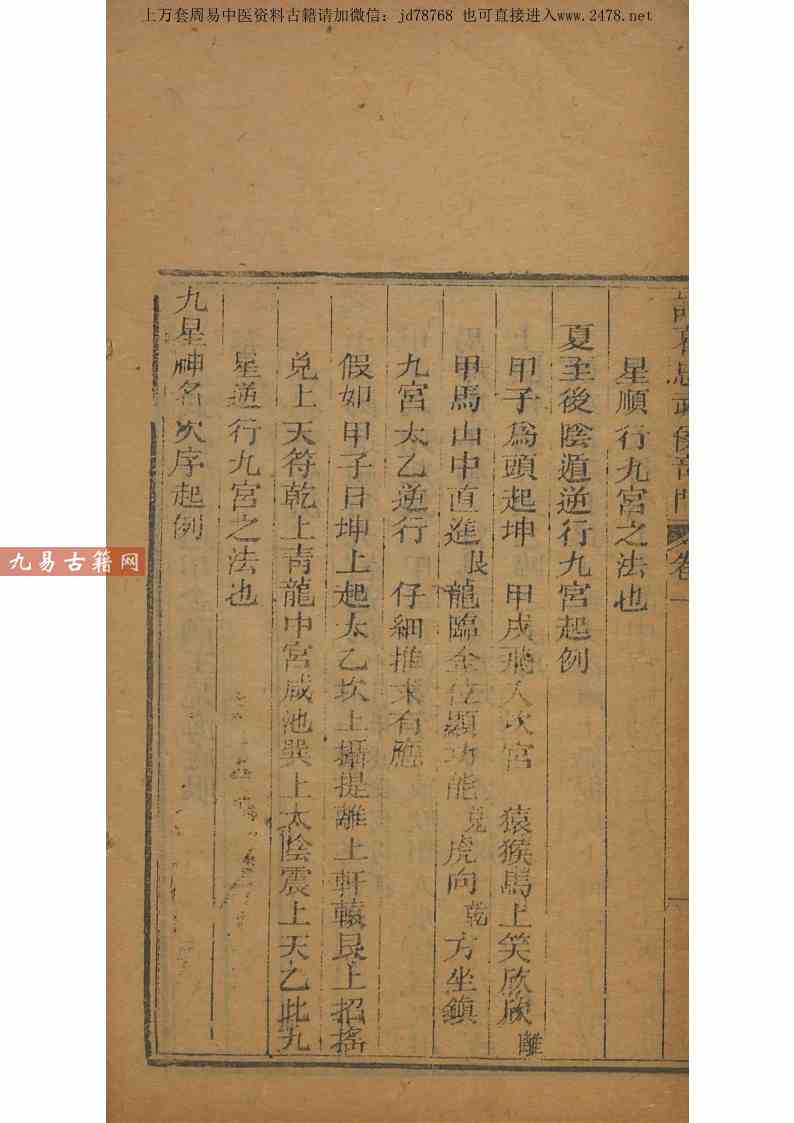 上万套周易中医资料古籍请加微信：jd78768 也可直接进入www.2478.net
卷一
星順行九宮之法也
夏至後陰遁逆行九宮起例
甲子爲頭起坤 甲戌飛入坎宮 猿猴馬上笑欣欣離
甲馬山中直進艮 龍臨金位顯功能兌 虎向乾方坐鎮
九宮太乙逆行 仔細推來有應
假如甲子日坤上起太乙坎上攝提離上軒轅艮上招搖
兌上天符乾上青龍中宮咸池巽上太陰震上天乙此九
星逆行九宮之法也
九星神名次序起例
九易古籍网